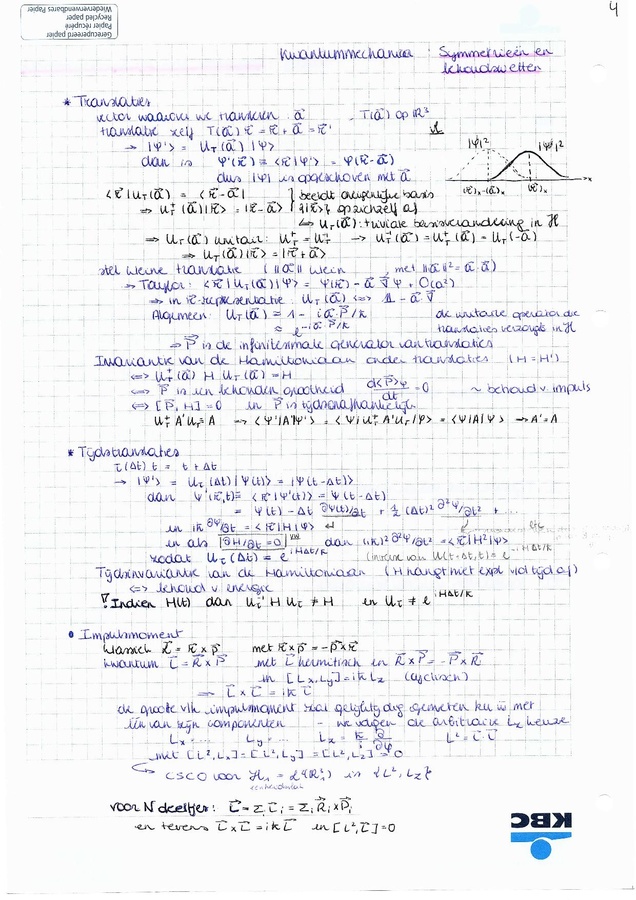 4
Gerecupereerd papier
Papier récupéré
Recycled paper
Wiederverwendbares Papier
Kwantummechanica : Symmetrieën en
behoudswetten
* Translaties
vector waarover we transleren : a⃗
translatie zelf T(a⃗) r⃗ = r⃗ + a⃗ = r⃗' , T(a⃗) op ℝ³
→ |ψ'> = U_T(a⃗) |ψ>
dan is ψ'(r⃗) = <r⃗|ψ'> = ψ(r⃗-a⃗)
dus |ψ| is opgeschoven met a⃗
|ψ|² |ψ'|²
<r⃗>ₓ-(a⃗)ₓ <r⃗>ₓ x
<r⃗|U_T(a⃗) = <r⃗-a⃗| } beeldt oneigenlijke basis
⇒ U_T⁺(a⃗)|r⃗> = |r⃗-a⃗> {|r⃗>} op zichzelf af
↳ U_T(a⃗) : triviale basisverandering in H
⇒ U_T(a⃗) unitair: U_T⁺ = U_T⁻¹ → U_T⁻¹(a⃗) = U_T⁺(a⃗) = U_T(-a⃗)
⇒ U_T(a⃗)|r⃗> = |r⃗+a⃗>
stel kleine translatie (||a⃗|| klein , met ||a⃗||² = a⃗·a⃗)
⇒ Taylor: <r⃗|U_T(a⃗)|ψ> = ψ(r⃗) - a⃗·∇⃗ψ + O(a²)
⇒ in r⃗-representatie: U_T(a⃗) ⇔ 𝟙 - a⃗·∇⃗
Algemeen: U_T(a⃗) ≈ 1 - ia⃗·P⃗/ħ de unitaire operator die
≈ e^{-ia⃗·P⃗/ħ} translaties verzorgt in H
⇒ P⃗ is de infinitesimale generator van translaties
Invariantie van de Hamiltoniaan onder translaties (H=H')
⇔ U_T⁺(a⃗) H U_T(a⃗) = H
⇔ P⃗ is een behouden grootheid d<P⃗>ψ/dt = 0 ~ behoud v impuls
⇔ [P⃗, H] = 0 en P⃗ is tijdsonafhankelijk
U_T⁺ A' U_T = A → <ψ'|A'|ψ'> = <ψ|U_T⁺ A' U_T|ψ> = <ψ|A|ψ> → A' = A
* Tijdstranslaties
τ(Δt) t = t + Δt
→ |ψ'> = U_τ(Δt)|ψ(t)> = |ψ(t-Δt)>
dan ψ'(r⃗,t) = <r⃗|ψ'(t)> = ψ(t-Δt)
= ψ(t) - Δt ∂ψ(t)/∂t + ½(Δt)² ∂²ψ/∂t² + ...
en iħ ∂ψ/∂t = <r⃗|H|ψ> ↵ etc
en als ∂H/∂t = 0 dan (iħ)² ∂²ψ/∂t² = <r⃗|H²|ψ>
zodat U_τ(Δt) = e^{iHΔt/ħ} (inverse van U(t+Δt,t) = e^{-iHΔt/ħ})
Tijdsinvariantie van de Hamiltoniaan (H hangt niet expl vd tijd af)
⇔ behoud v energie
! Indien H(t) dan U_τ⁻¹ H U_τ ≠ H en U_τ ≠ e^{iHΔt/ħ}
• Impulsmoment
klassiek L⃗ = r⃗×p⃗ met r⃗×p⃗ = -p⃗×r⃗
kwantum L⃗ = R⃗×P⃗ met L⃗ hermitisch en R⃗×P⃗ = -P⃗×R⃗
en [Lx,Ly] = iħLz (cyclisch)
⇒ L⃗×L⃗ = iħL⃗
de grootte vh impulsmoment zal gelijktijdig gemeten ku w met
één van zijn componenten – we volgen de arbitraire Lz keuze
Lx = ... Ly = ... Lz = ħ/i ∂/∂φ L² = L⃗·L⃗
met [L²,Lx] = [L²,Ly] = [L²,Lz] = 0
↪ CSCO voor H₁ = ℒ²(ℝ³) is {L², Lz}
voor N deeltjes: L⃗ = Σᵢ L⃗ᵢ = Σᵢ R⃗ᵢ×P⃗ᵢ
en tevens L⃗×L⃗ = iħL⃗ en [L²,L⃗] = 0
KBC